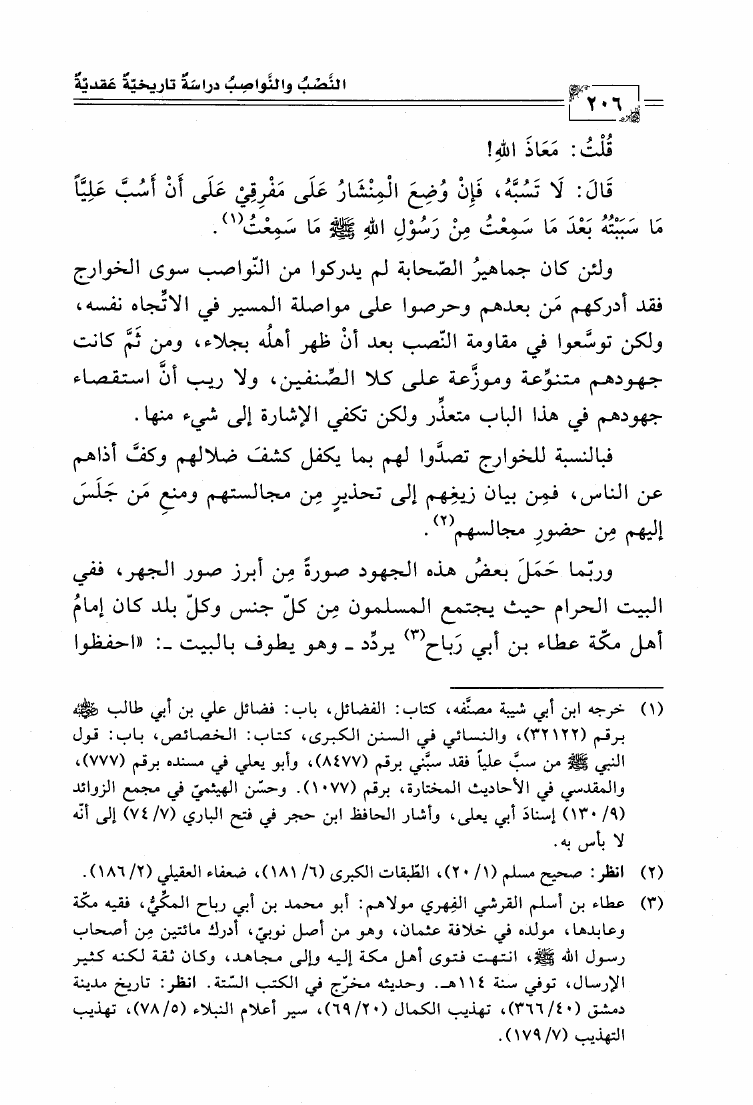 النَّصْبُ والنَّواصِبُ دراسَةٌ تاريخيّةٌ عَقديّةٌ
٢٠٦
قُلْتُ: مَعَاذَ اللهِ!
قَالَ: لَا تَسُبَّهُ، فَإِنْ وُضِعَ الْمِنْشَارُ عَلَى مَفْرِقِيْ عَلَى أَنْ أَسُبَّ عَلِيَّاً
مَا سَبَبْتُهُ بَعْدَ مَا سَمِعْتُ مِنْ رَسُوْلِ اللهِ ﷺ مَا سَمِعْتُ(١).
ولئن كان جماهيرُ الصّحابة لم يدركوا من النّواصب سوى الخوارج
فقد أدركهم مَن بعدهم وحرصوا على مواصلة المسير في الاتّجاه نفسه،
ولكن توسَّعوا في مقاومة النّصب بعد أنْ ظهر أهلُه بجلاء، ومن ثَمَّ كانت
جهودهم متنوِّعة وموزَّعة على كلا الصِّنفين، ولا ريب أنَّ استقصاء
جهودهم في هذا الباب متعذِّر ولكن تكفي الإشارة إلى شيء منها.
فبالنسبة للخوارج تصدَّوا لهم بما يكفل كشفَ ضلالهم وكفَّ أذاهم
عن الناس، فمِن بيان زيغِهم إلى تحذيرٍ مِن مجالستهم ومنعِ مَن جَلَسَ
إليهم مِن حضورِ مجالسهم(٢).
وربّما حَمَلَ بعضُ هذه الجهود صورةً مِن أبرز صور الجهر، ففي
البيت الحرام حيث يجتمع المسلمون مِن كلّ جنس وكلّ بلد كان إمامُ
أهل مكّة عطاء بن أبي رَباح(٣) يردِّد ـ وهو يطوف بالبيت ـ: «احفظوا
(١) خرجه ابن أبي شيبة مصنَّفه، كتاب: الفضائل، باب: فضائل علي بن أبي طالب ﵁
برقم (٣٢١٢٢)، والنسائي في السنن الكبرى، كتاب: الخصائص، باب: قول
النبي ﷺ من سبَّ علياً فقد سبَّني برقم (٨٤٧٧)، وأبو يعلي في مسنده برقم (٧٧٧)،
والمقدسي في الأحاديث المختارة، برقم (١٠٧٧). وحسّن الهيثميّ في مجمع الزوائد
(٩/ ١٣٠) إسنادَ أبي يعلى، وأشار الحافظ ابن حجر في فتح الباري (٧/ ٧٤) إلى أنّه
لا بأس به.
(٢) انظر: صحيح مسلم (١/ ٢٠)، الطّبقات الكبرى (٦/ ١٨١)، ضعفاء العقيلي (٢/ ١٨٦).
(٣) عطاء بن أسلم القرشي الفِهري مولاهم: أبو محمد بن أبي رباح المكِّيُّ، فقيه مكّة
وعابدها، مولده في خلافة عثمان، وهو من أصل نوبيّ، أدرك مائتين مِن أصحاب
رسول الله ﷺ، انتهت فتوى أهل مكة إليه وإلى مجاهد، وكان ثقة لكنه كثير
الإرسال، توفي سنة ١١٤هـ. وحديثه مخرّج في الكتب السّتة. انظر: تاريخ مدينة
دمشق (٤٠/ ٣٦٦)، تهذيب الكمال (٢٠/ ٦٩)، سير أعلام النبلاء (٥/ ٧٨)، تهذيب
التهذيب (٧/ ١٧٩).